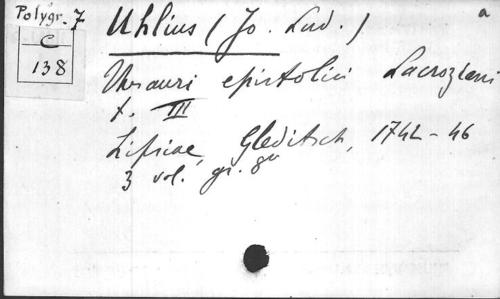 Polygr. 7
C
138
Uhlius (Jo. Lud.)
a
Thesauri epistolici Lacroziani
t. III
Lipsiae, Gleditsch, 1742-46
3 vol. gr. 8°